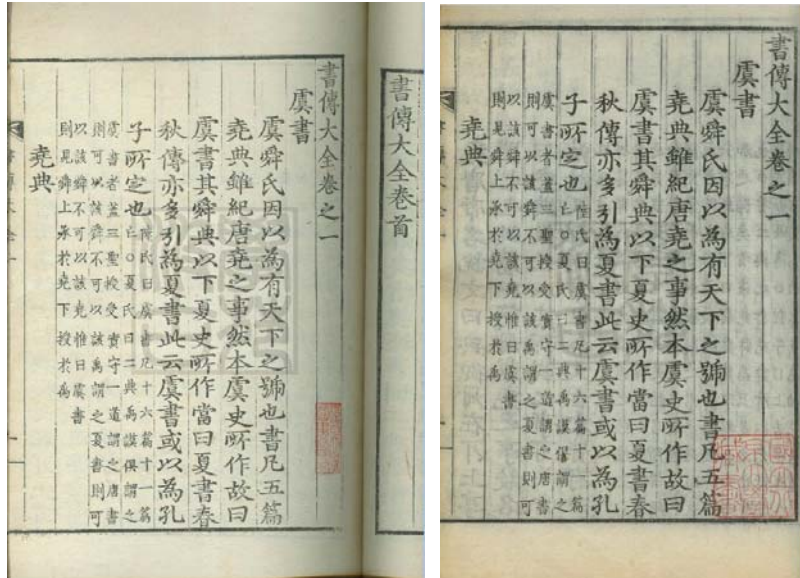 書傳大全卷首
書傳大全卷之一
虞書
虞舜氏因以為有天下之號也書凡五篇
堯典雖紀唐堯之事然本虞史所作故曰
虞書其舜典以下夏史所作當曰夏書春
秋傳亦多引為夏書此云虞書或以為孔
子所定也
陸氏曰虞書凡十六篇十一篇
亡○夏氏曰二典禹謨僃謂之
虞書者蓋三聖授受實守一道謂之唐書
則可以該舜不可以該禹謂之夏書則可
以該舜不可以該堯惟曰虞書
則見舜上承於堯下授於禹
堯典
書傳大全卷之一
虞書
虞舜氏因以為有天下之號也書凡五篇
堯典雖紀唐堯之事然本虞史所作故曰
虞書其舜典以下夏史所作當曰夏書春
秋傳亦多引為夏書此云虞書或以為孔
子所定也
陸氏曰虞書凡十六篇十一篇
亡○夏氏曰二典禹謨僃謂之
虞書者蓋三聖授受實守一道謂之唐書
則可以該舜不可以該禹謂之夏書則可
以該舜不可以該堯惟曰虞書
則見舜上承於堯下授於禹
堯典